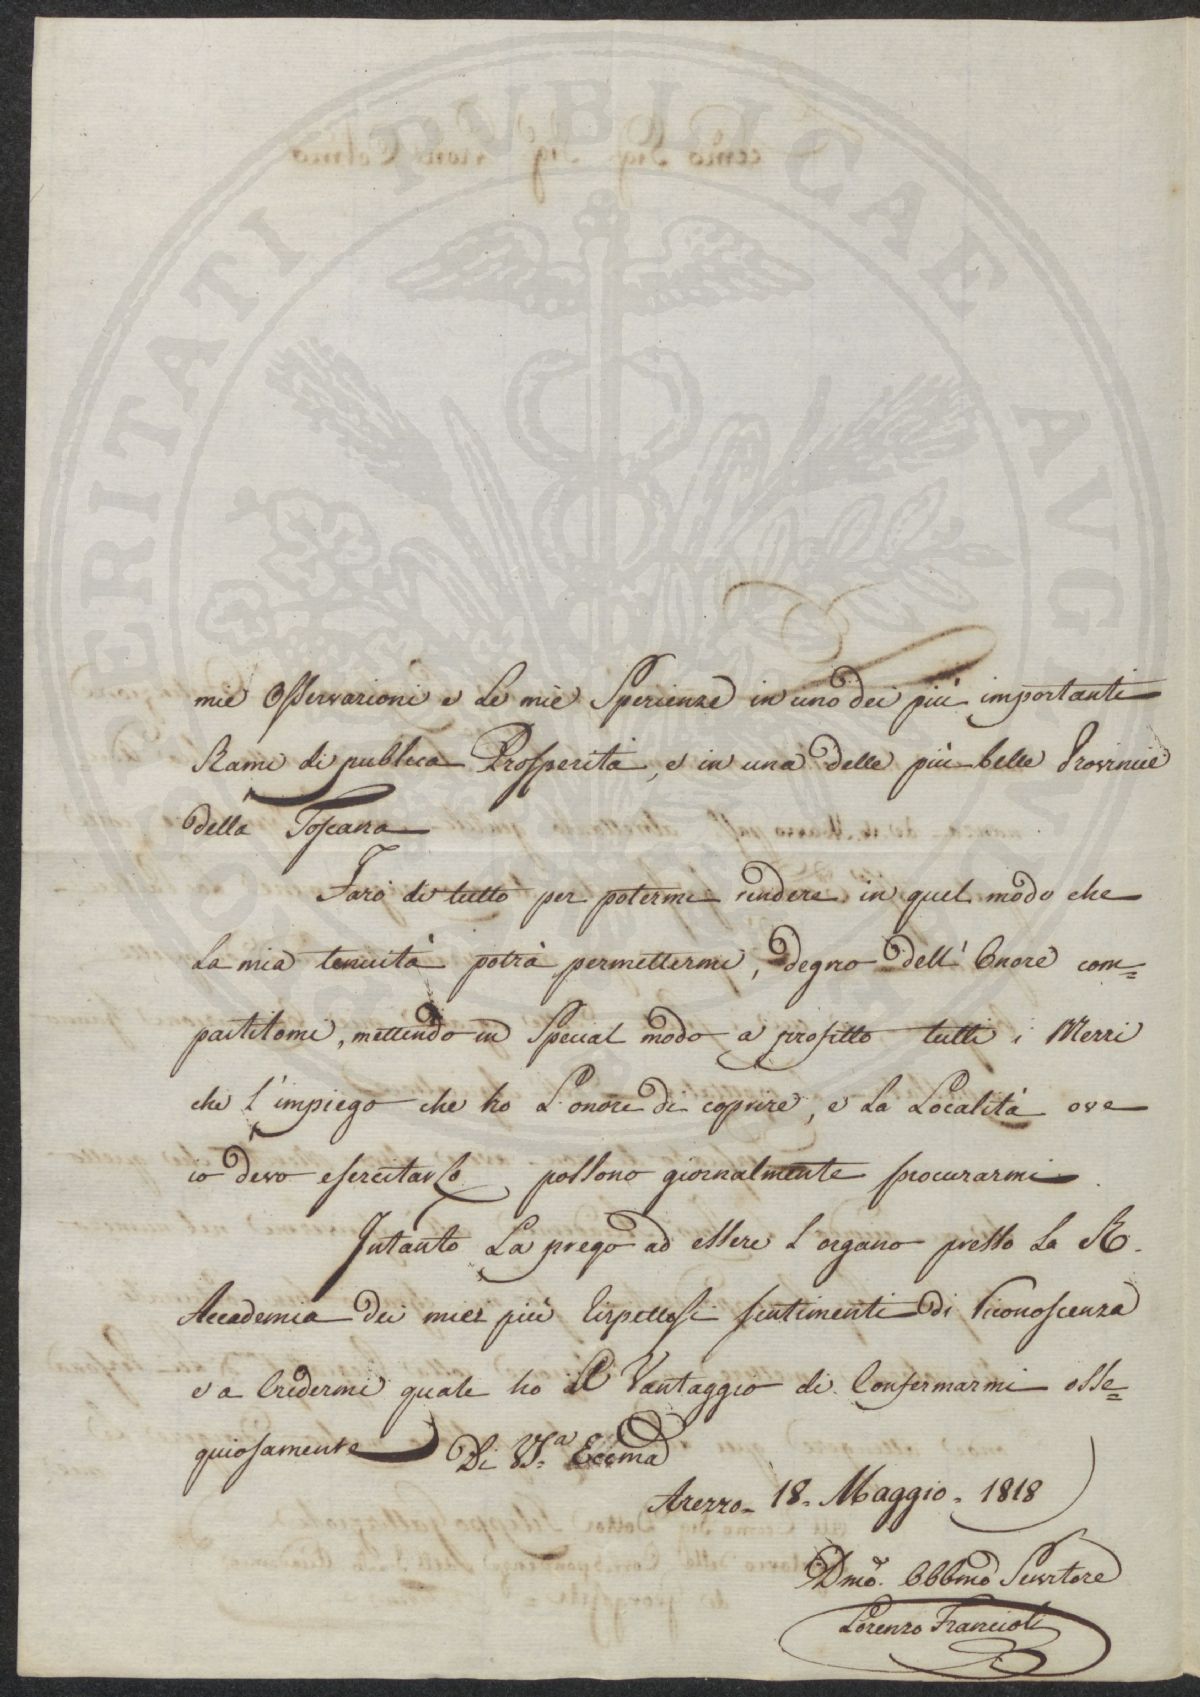 PROSPERITATI PUBLICAE AVGENDAE
mie Osservazioni e Le mie Sperienze in uno dei più importanti
Rami di publica Prosperità, e in una delle più belle Provincie
della Toscana
Farò di tutto per potermi rendere in quel modo che
La mia tenuità potrà permettermi, degno dell' Onore com=
partitomi, mettendo in Special modo a profitto tutti i Mezzi
che l'impiego che ho L'onore di coprire, e La Località ove
io devo esercitarlo possono giornalmente procurarmi
Intanto La prego ad essere L'organo presso La R.
Accademia dei miei più rispettosi sentimenti di riconoscenza
e a Credermi quale ho il Vantaggio di Confermarmi osse=
quiosamente Di VSa. Eccma
Arezzo 18. Maggio. 1818
Dmo. Obbmo Servitore
Lorenzo Francioli